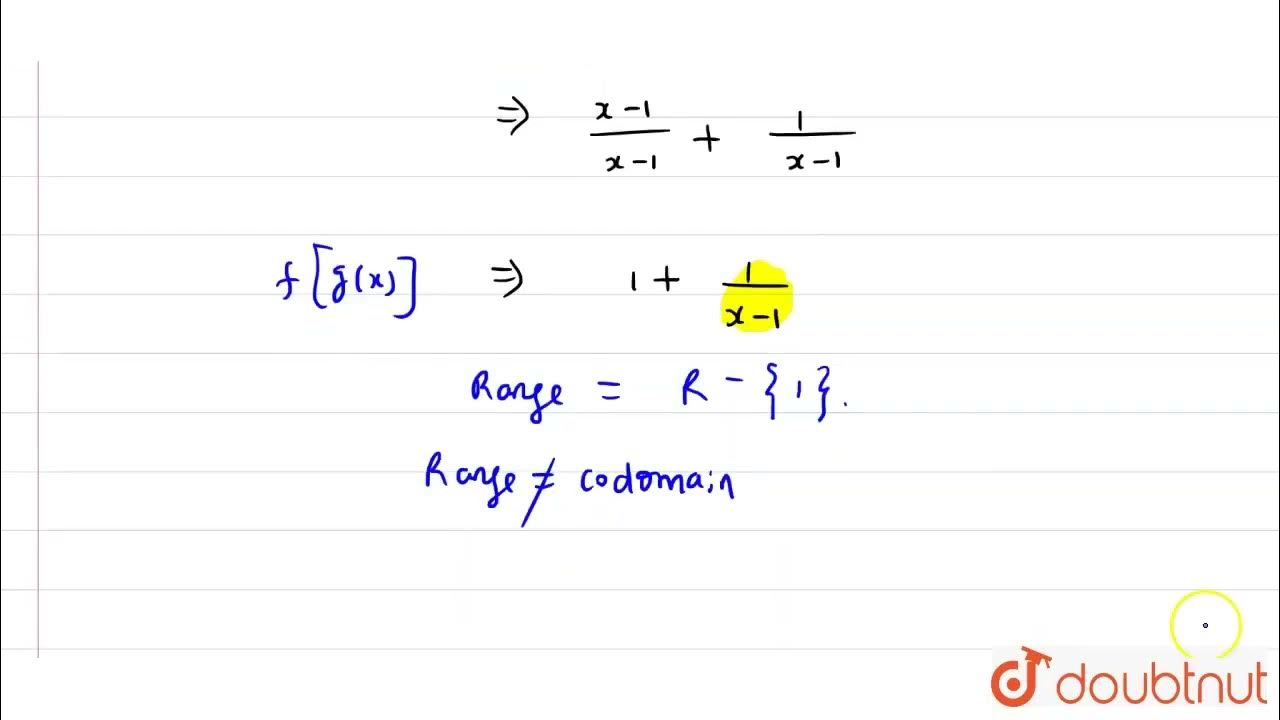 ⇒ (x-1)/(x-1) + 1/(x-1)
f[g(x)] ⇒ 1 + 1/(x-1)
Range = R - {1}.
Range ≠ codomain
doubtnut